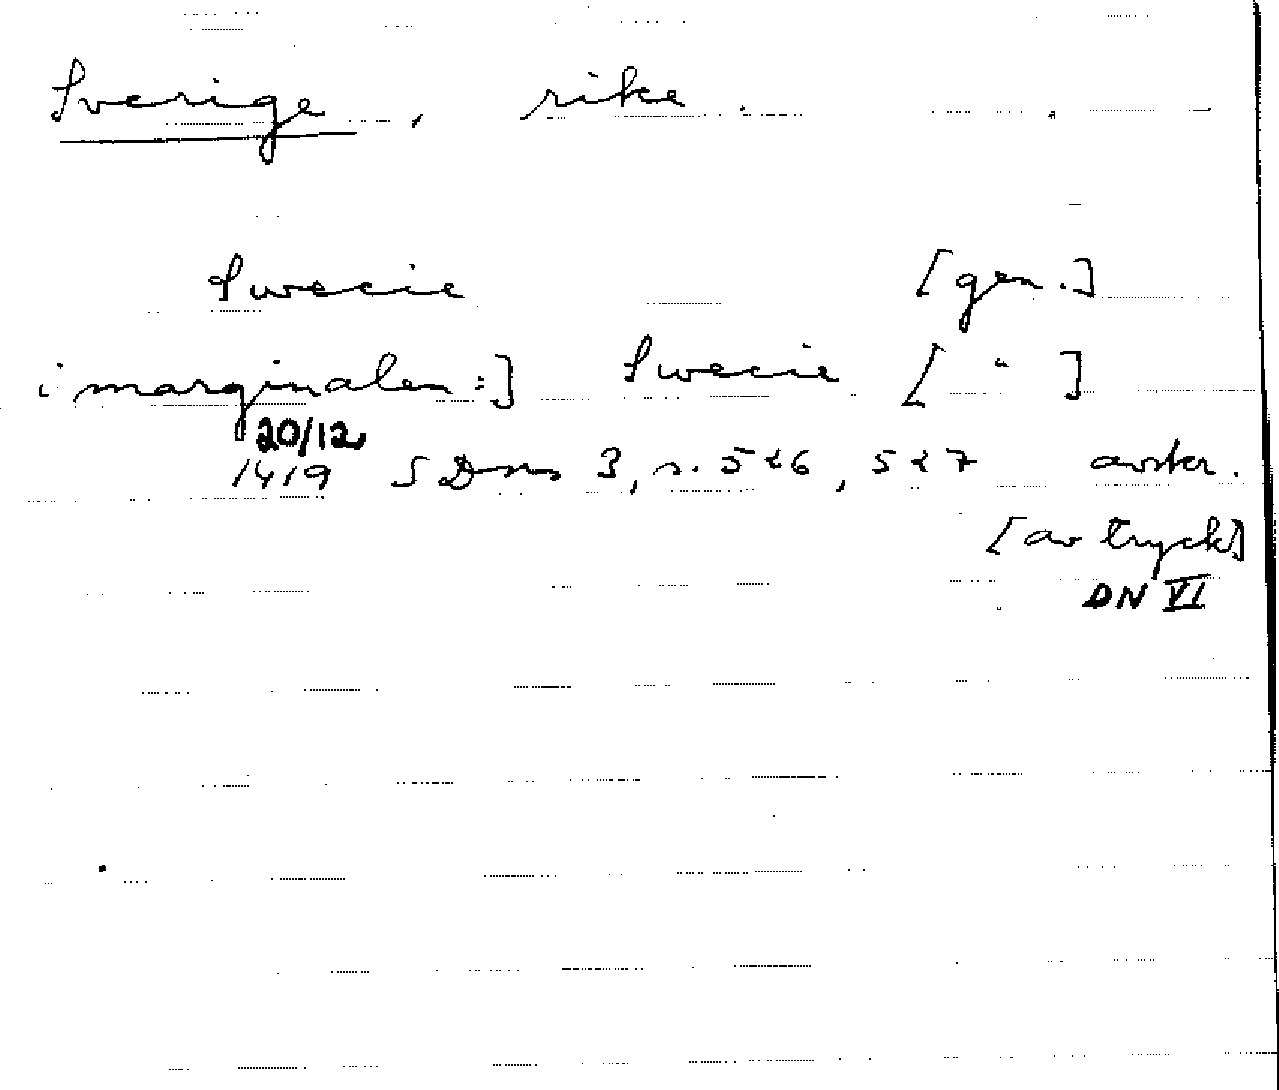 Sverige, rike.
Swecie [gen.]
i marginalen:] Swecie [ " ]
20/12
1419 SDns 3, s. 526, 527 avskr.
[av tryck]
DN VI